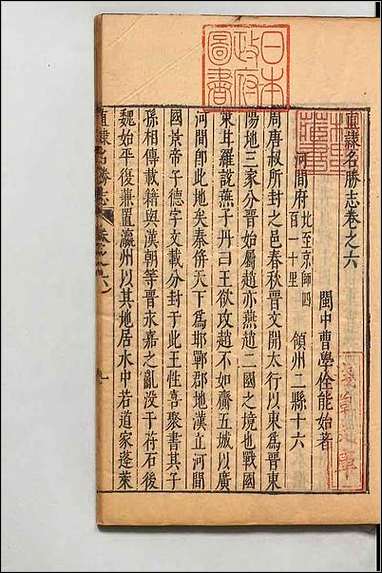 直隸名勝志卷之六
閩中曹學佺能始著
河間府 北至京師四百一十里 領州二縣十六
周唐叔所封之邑春秋晉文開太行以東為晉東
陽地三家分晉始屬趙亦燕趙二國之境也戰國
策甘羅說燕子丹曰王欲攻趙不如齎五城以廣
河間即此地矣秦併天下為邯鄲郡地漢立河間
國景帝子德字文載分封于此王性喜聚書其子
孫相傳載籍與漢朝等晉永嘉之亂没于符石後
魏始平復兼置瀛州以其地居水中若道家蓬萊
日本
政府
圖書
直隸名勝志